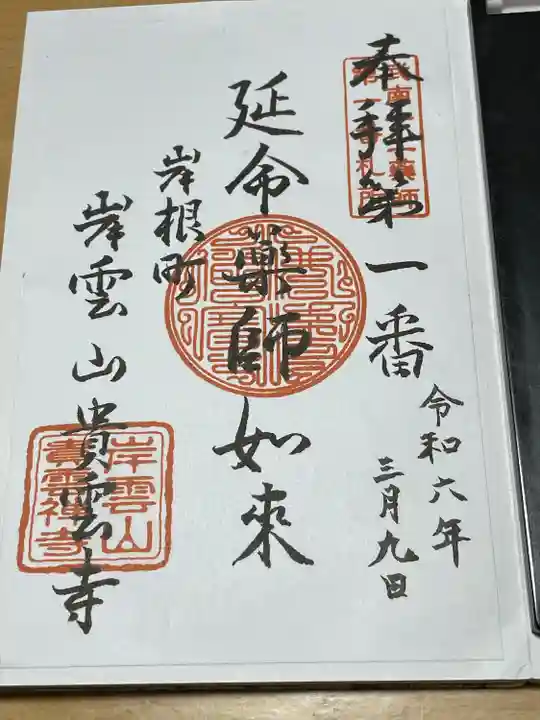 奉拝第一番
令和六年
三月九日
延命薬師如来
岸根町
岸雲山貴雲寺
岸雲山
貴雲禅寺